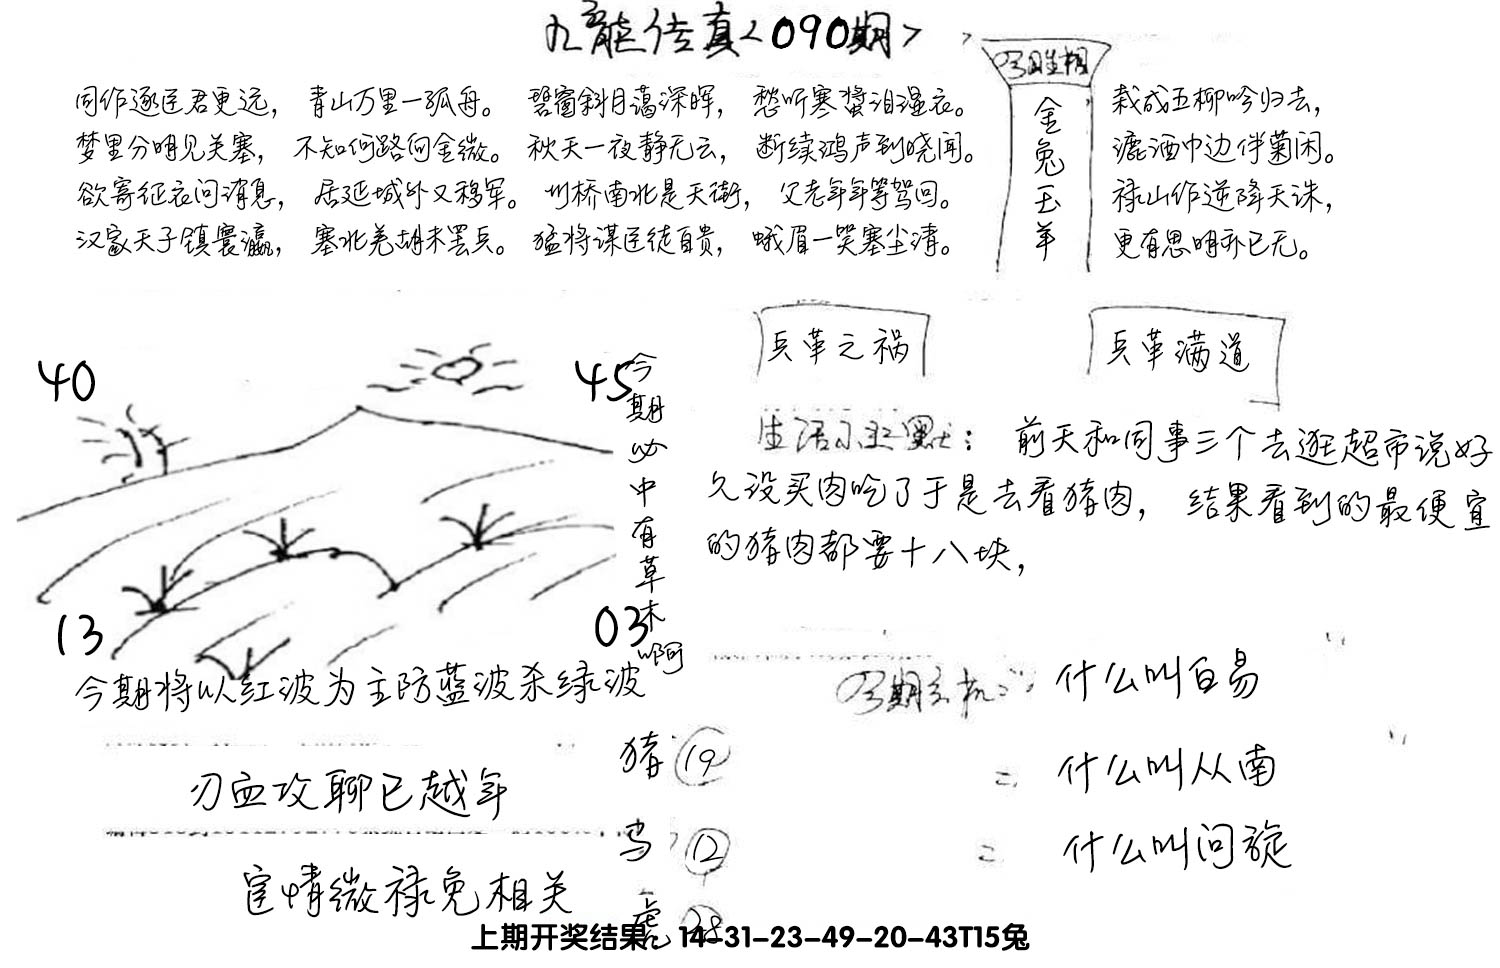 九龙传真<090期>
同作逐臣君更远， 青山万里一孤舟。 碧窗斜月蔼深晖， 愁听寒螀泪湿衣。
梦里分明见关塞， 不知何路向金微。 秋天一夜静无云， 断续鸿声到晓闻。
欲寄征衣问消息， 居延城外又移军。 州桥南北是天街， 父老年年等驾回。
汉家天子镇寰瀛， 塞北羌胡未罢兵。 猛将谋臣徒自贵， 蛾眉一笑塞尘清。
金兔玉羊
栽成五柳吟归去，
漉酒中边伴菊闲。
禄山作逆降天诛，
更有思明亦已无。
兵革之祸
兵革满道
40
45
13
03
今期必中有草木啊
今期将以红波为主防蓝波杀绿波
生活小幽默：前天和同事三个去逛超市说好
久没买肉吃了于是去看猪肉， 结果看到的最便宜
的猪肉都要十八块，
今期玄机：什么叫白易
= 什么叫从南
= 什么叫问旋
刃血攻聊已越年
宦情微禄免相关
猪 19
马 12
虎 28
上期开奖结果 14-31-23-49-20-43T15兔